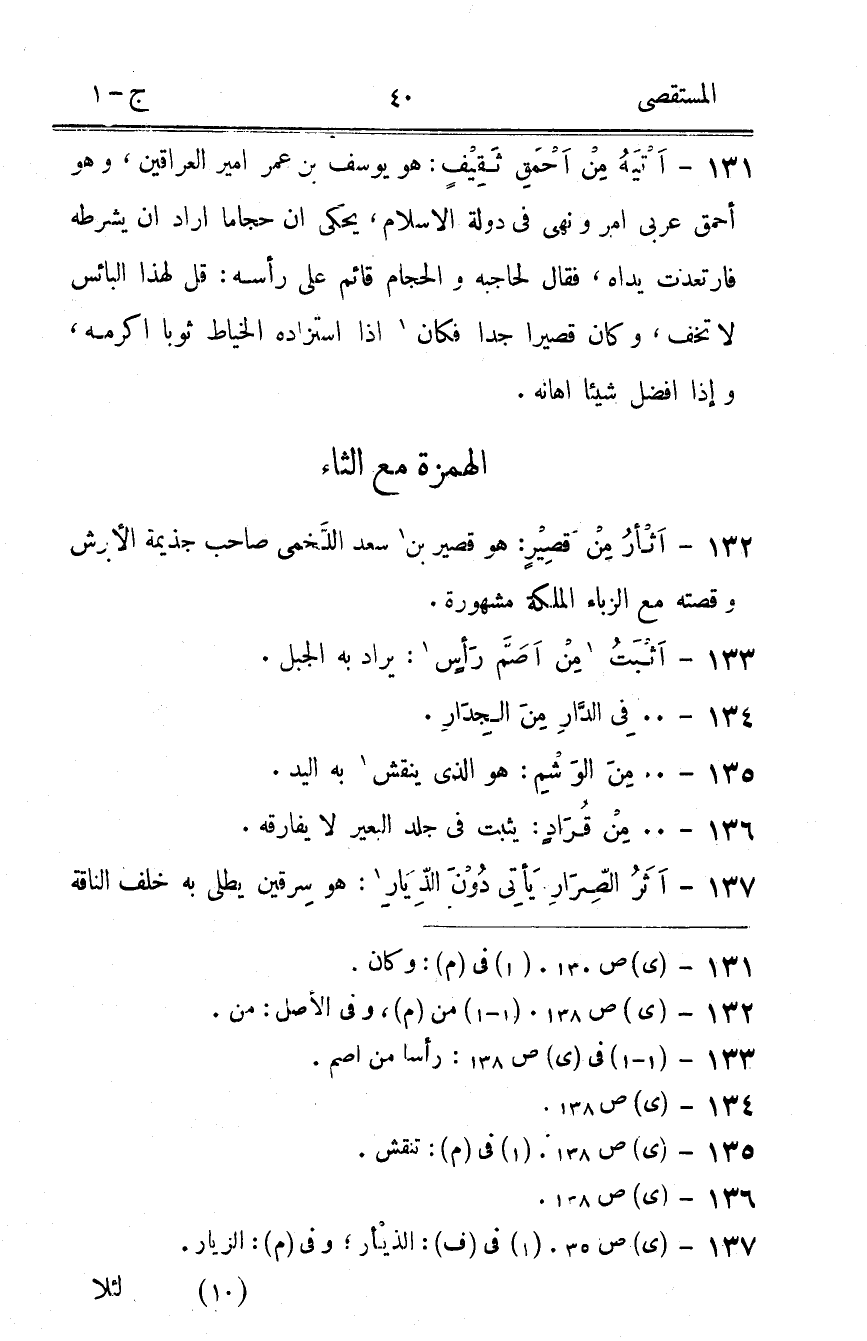 المستقصى ٤٠ ج - ١
١٣١ - اَتْيَهُ مِنْ اَحْمَقِ ثَقِيْفٍ : هو يوسف بن عمر امير العراقين ، و هو
أحمق عربى امر و نهى فى دولة الاسلام ، يحكى ان حجاما اراد ان يشرطه
فارتعدت يداه ، فقال لحاجبه و الحجام قائم على رأسه : قل لهذا البائس
لا تخف ، و كان قصيرا جدا فكان ١ اذا استزاده الخياط ثوبا اكرمه ،
و إذا افضل شيئا اهانه .
الهمزة مع الثاء
١٣٢ - اَثْأَرُ مِنْ قَصِيْرٍ : هو قصير بن ١ سعد اللَّخمى صاحب جذيمة الأبرش
و قصته مع الزباء الملكة مشهورة .
١٣٣ - اَثْبَتُ ١ مِنْ اَصَمَّ رَأسٍ ١ : يراد به الجبل .
١٣٤ - ٠٠ فِى الدَّارِ مِنَ الجِدَارِ .
١٣٥ - ٠٠ مِنَ الوَشْمِ : هو الذى ينقش ١ به اليد .
١٣٦ - ٠٠ مِنْ قُرَادٍ : يثبت فى جلد البعير لا يفارقه .
١٣٧ - اَثَرُ الصِّرَارِ يَأتِى دُوْنَ الذِّيَارِ ١ : هو سرقين يطلى به خلف الناقة
١٣١ - (ى) ص ١٣٠ . (١) فى (م) : و كان .
١٣٢ - (ى) ص ١٣٨ . (١-١) من (م) ، و فى الأصل : من .
١٣٣ - (١-١) فى (ى) ص ١٣٨ : رأسا من اصم .
١٣٤ - (ى) ص ١٣٨ .
١٣٥ - (ى) ص ١٣٨ . (١) فى (م) : تنقش .
١٣٦ - (ى) ص ١٣٨ .
١٣٧ - (ى) ص ٣٥ . (١) فى (ف) : الذيْأر ؛ و فى (م) : الزيار .
(١٠) لئلا